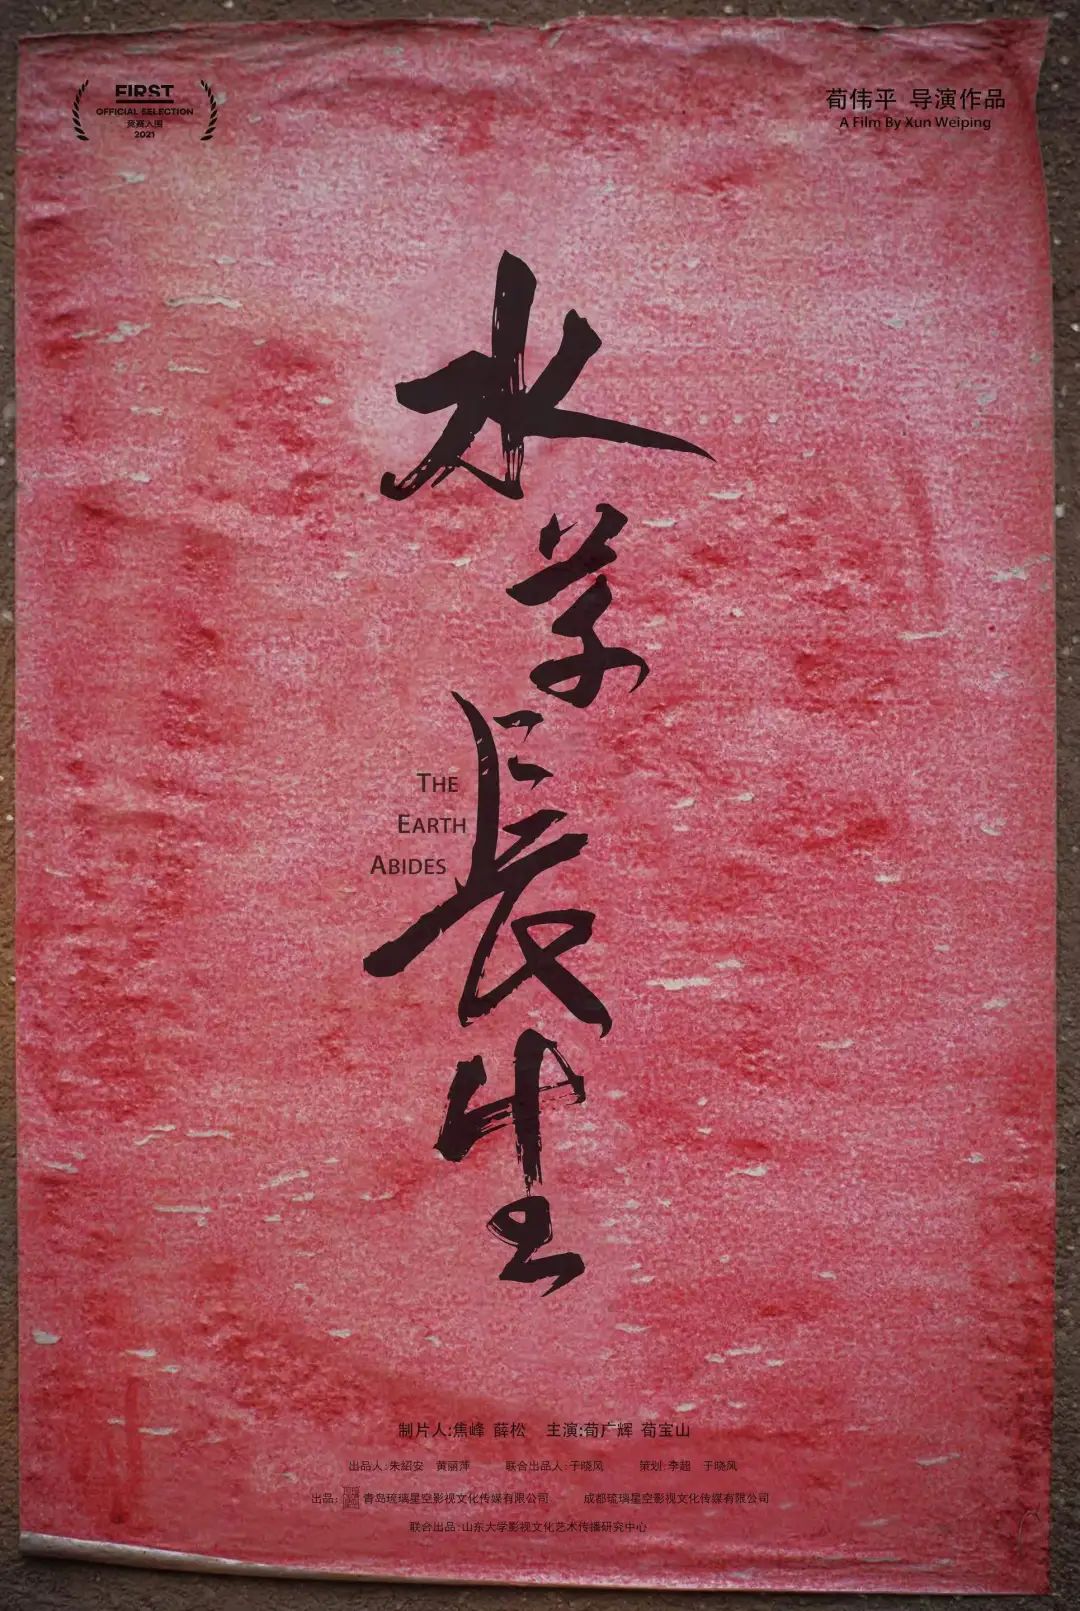 FIRST
OFFICIAL SELECTION
竞赛入围
2021
荀伟平 导演作品
A Film By Xun Weiping
水草長生
THE
EARTH
ABIDES
制片人:焦峰 薛松 主演:荀广辉 荀宝山
出品人:朱紹安 黄丽萍 联合出品人:于晓风 策划:李超 于晓风
出品: 青岛琉璃星空影视文化传媒有限公司 成都琉璃星空影视文化传媒有限公司
联合出品:山东大学影视文化艺术传播研究中心